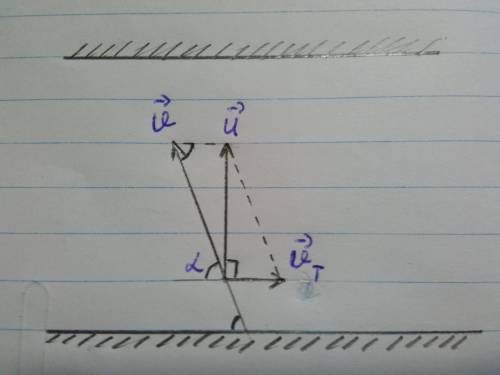 v⃗ u⃗
α v⃗т